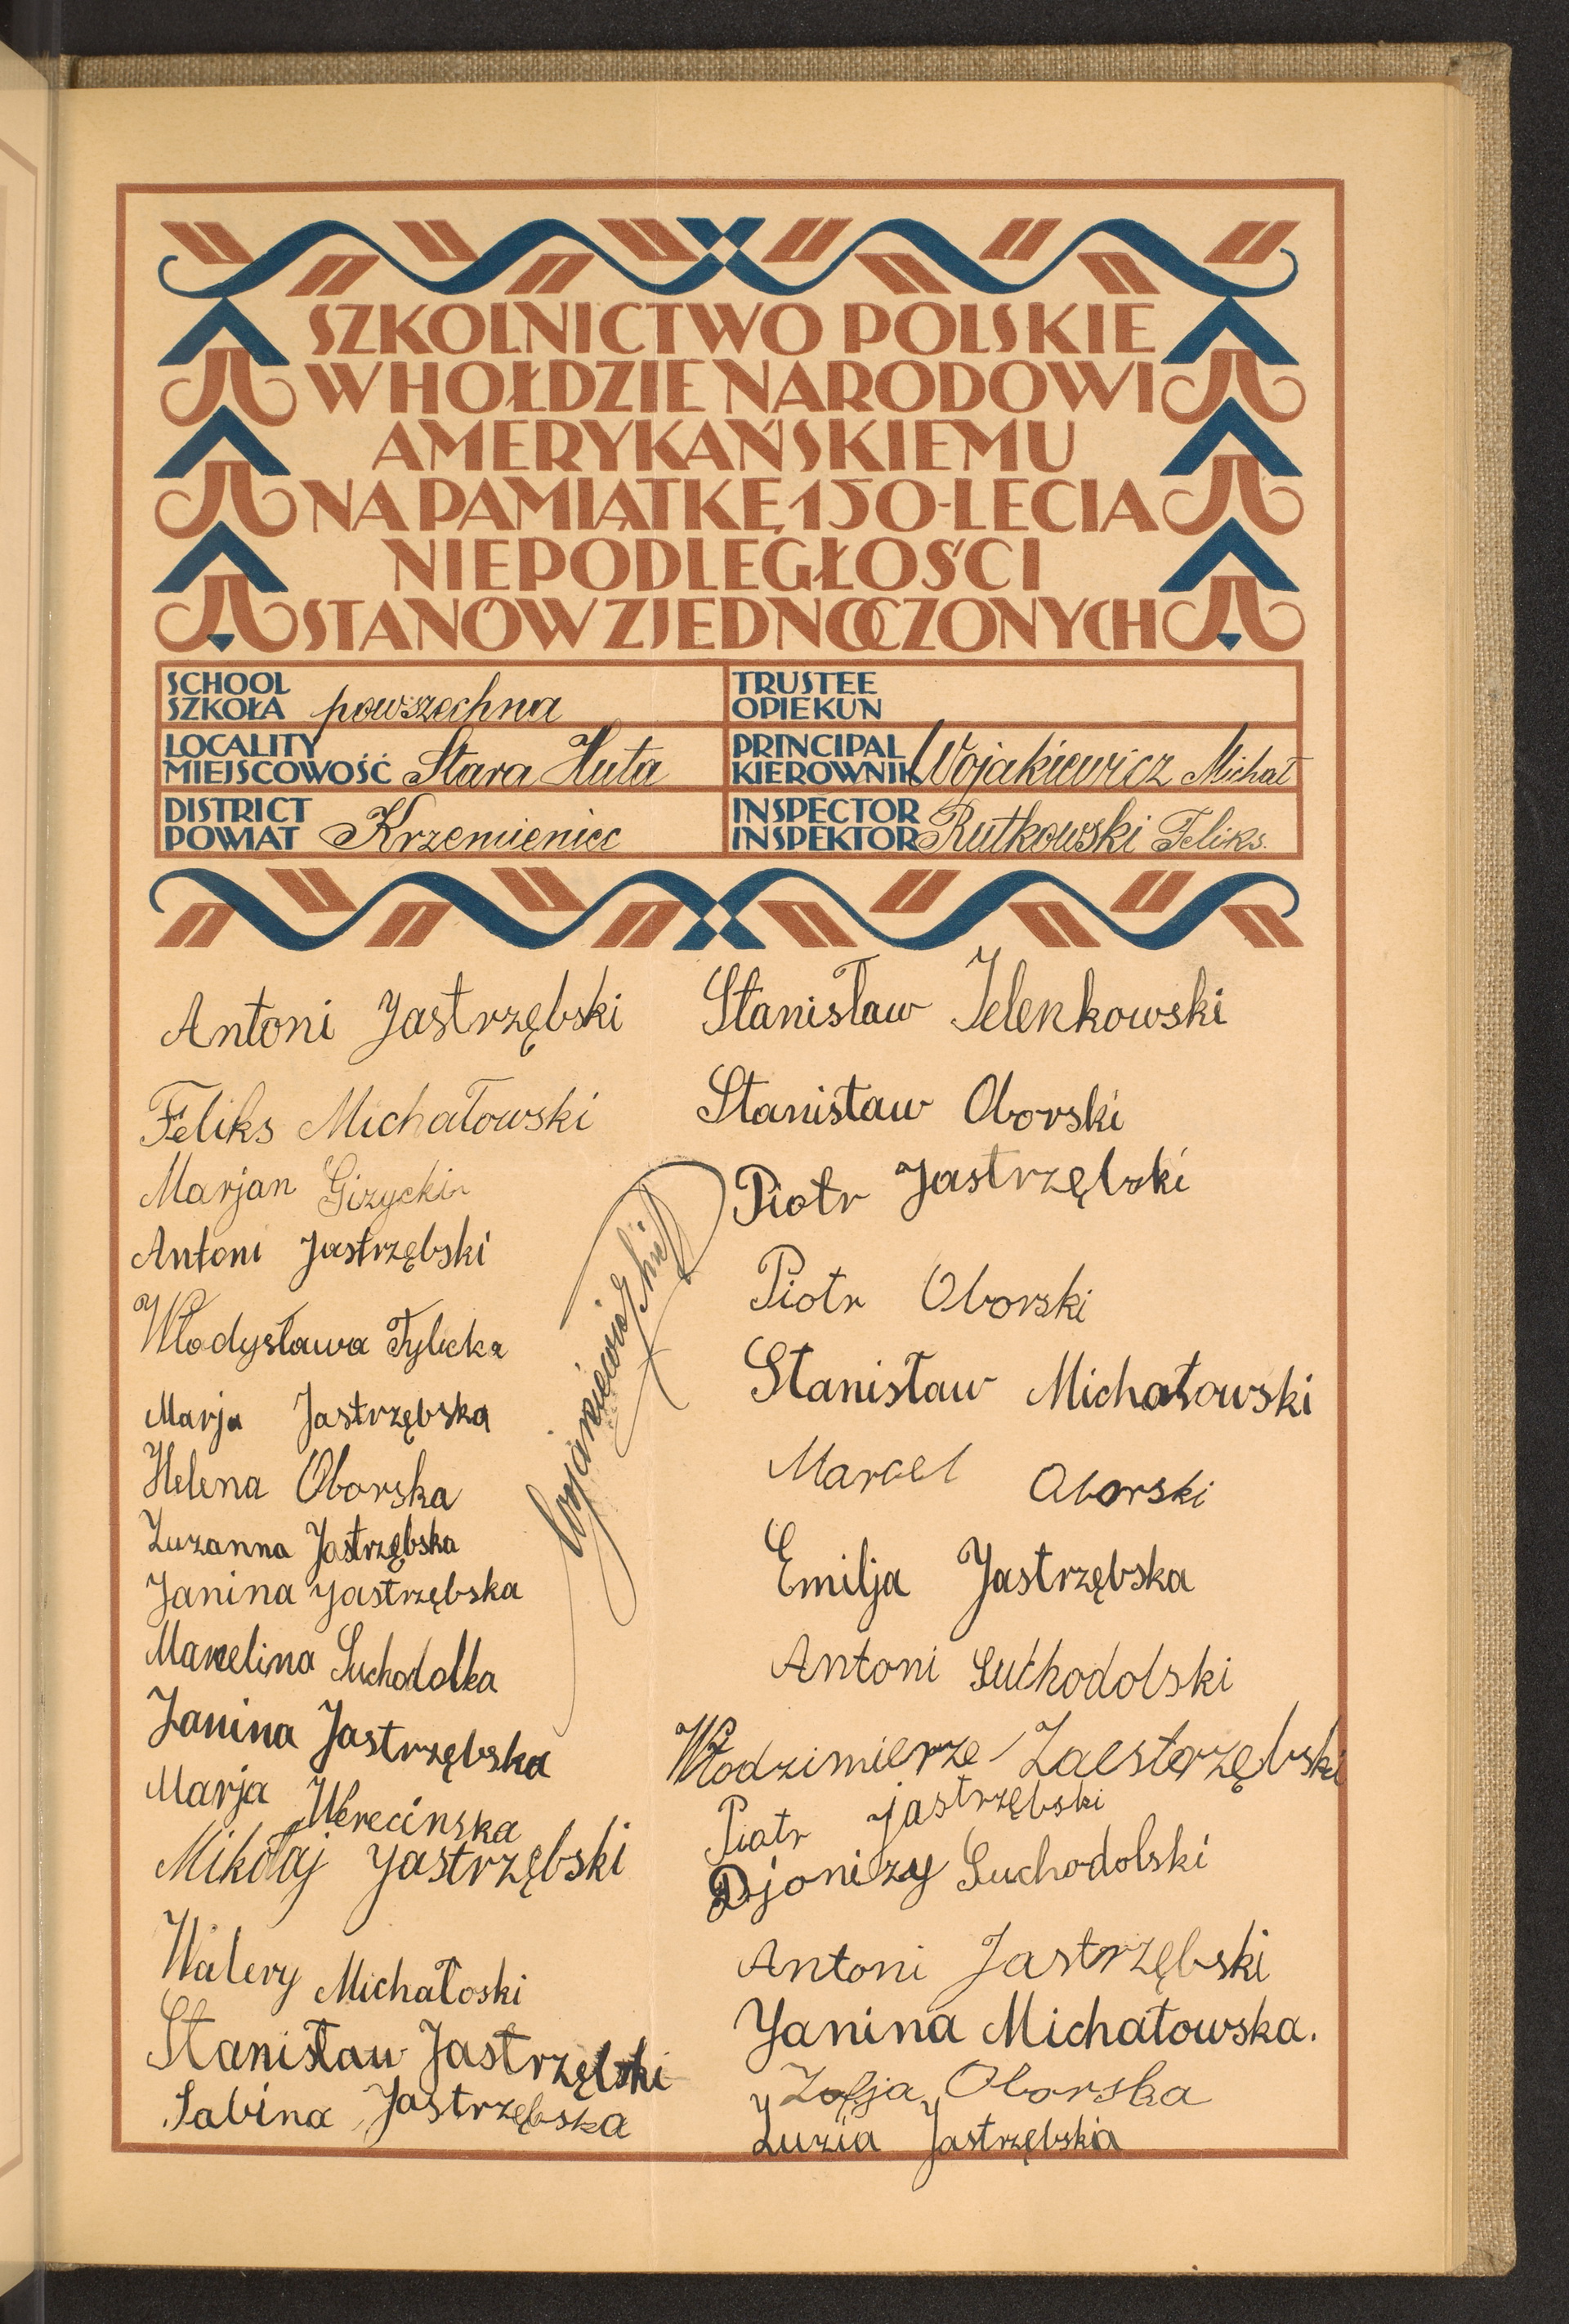 SZKOLNICTWO POLSKIE
W HOŁDZIE NARODOWI
AMERYKAŃSKIEMU
NA PAMIĄTKĘ 150-LECIA
NIEPODLEGŁOŚCI
STANÓW ZJEDNOCZONYCH
SCHOOL
SZKOŁA powszechna
TRUSTEE
OPIEKUN
LOCALITY
MIEJSCOWOŚĆ Stara Huta
PRINCIPAL
KIEROWNIK Wojakiewicz Michał
DISTRICT
POWIAT Krzemieniec
INSPECTOR
INSPEKTOR Rutkowski Feliks.
Antoni Jastrzębski
Feliks Michałowski
Marjan Gizycki
Antoni Jastrzębski
Włodysława Tylicka
Marja Jastrzębska
Helena Oborska
Zuzanna Jastrzębska
Janina Jastrzębska
Marcelina Suchodolka
Janina Jastrzębska
Marja Werecinska
Mikołaj Jastrzębski
Walery Michałoski
Stanisław Jastrzębski
Sabina Jastrzębska
Stanisław Jelenkowski
Stanisław Oborski
Piotr Jastrzębski
Piotr Oborski
Stanisław Michałowski
Marcel Oborski
Emilja Jastrzębska
Antoni Suchodolski
Włodzimierze Zaesterzębski
Piotr Jastrzębski
Djonizy Suchodolski
Antoni Jastrzębski
Janina Michałowska.
Zofja Oborska
Luzia Jastrzębska